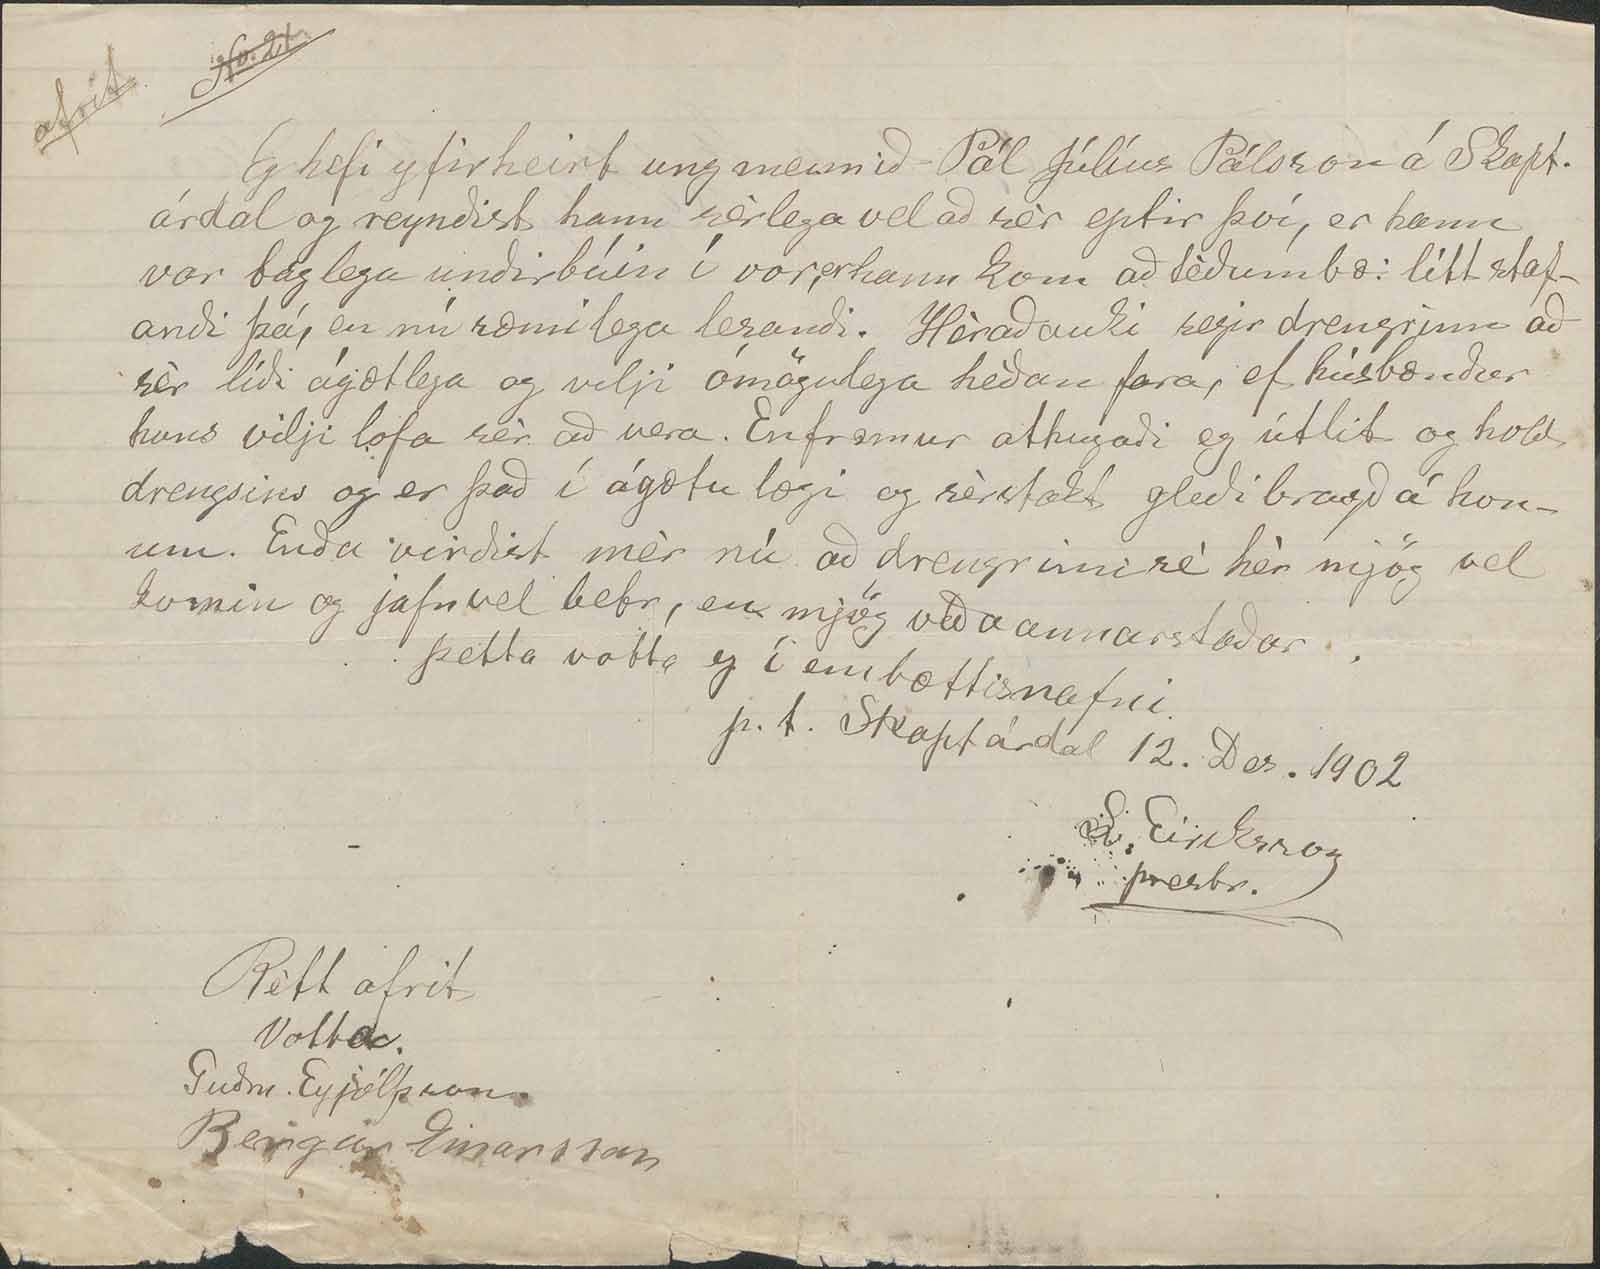 afrit
No. 21
Eg hefi yfirheirt ungmennið Pál Júlíus Pálsson á Skapt-
árdal og reyndist hann sèrlega vel að sèr eptir því, er hann
var báglega undirbúin í vor, er hann kom að téðum bæ: lítt staf-
andi þá, en nú sæmilega lesandi. Hèraðauki segir drengrinn að
sèr líði ágætlega og vilji ómögulega héðan fara, ef húsbændur
hans vilji lofa sèr að vera. Enfremur athugaði eg útlit og hold
drengsins og er það í ágætu lagi og sèrstakt gleðibragð á hon-
um. Enda virðist mèr nú að drengrinn sé hèr mjög vel
komin og jafnvel betr, en mjög víða annarstaðar.
Þetta votta eg í embættisnafni
p. t. Skaptárdal 12. Des. 1902
S. Eiríksson
prestr.
Rètt afrit
Votta.
Guðm. Eyjólfsson
Bergur Einarsson